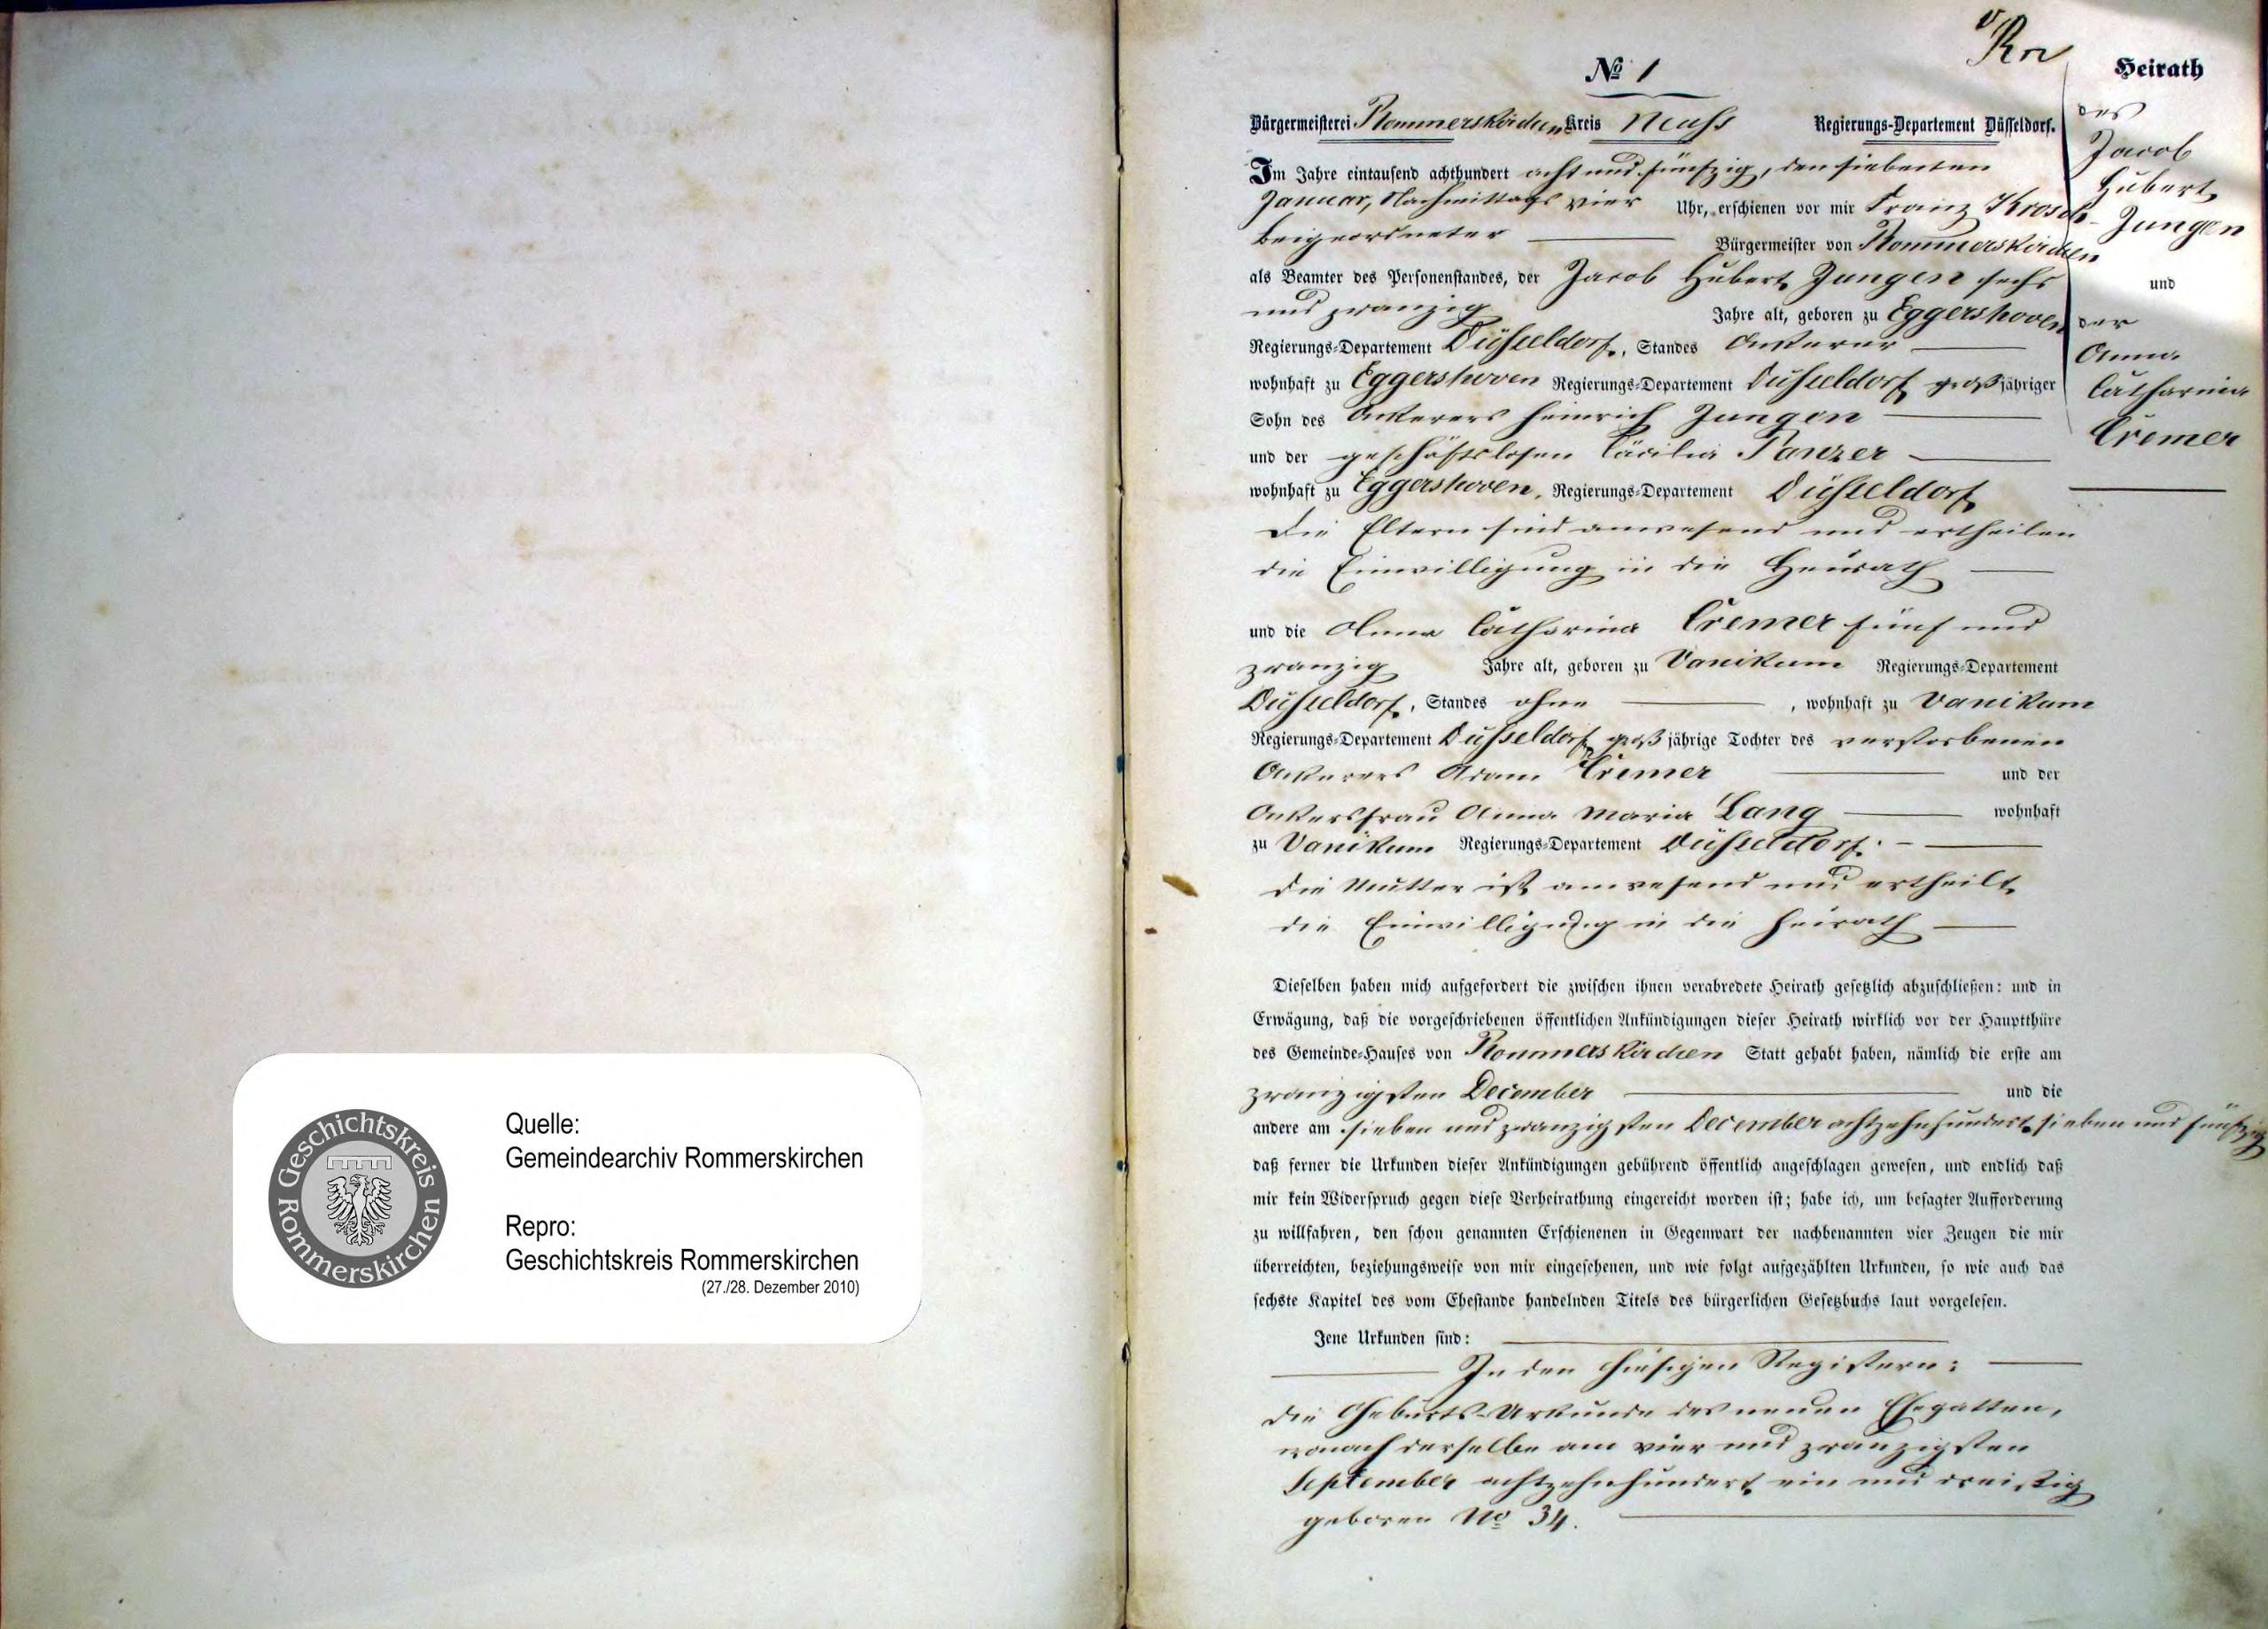 Geschichtskreis Rommerskirchen
Quelle:
Gemeindearchiv Rommerskirchen
Repro:
Geschichtskreis Rommerskirchen
(27./28. Dezember 2010)
№ 1
Bürgermeisterei Rommerskirchen Kreis Neuss Regierungs-Departement Düsseldorf.
Im Jahre eintausend achthundert acht und fünfzig, den siebenten
Januar, Nachmittags vier Uhr, erschienen vor mir Franz Krosch
Beigeordneter Bürgermeister von Rommerskirchen
als Beamter des Personenstandes, der Jacob Hubert Jungen sechs
und zwanzig Jahre alt, geboren zu Eggershoven
Regierungs-Departement Düsseldorf, Standes Ackerer
wohnhaft zu Eggershoven Regierungs-Departement Düsseldorf großjähriger
Sohn des Ackerers Heinrich Jungen
und der geschäftslosen Cäcilia Panzer
wohnhaft zu Eggershoven, Regierungs-Departement Düsseldorf
Die Eltern sind anwesend und ertheilen
die Einwilligung in die Heirath
und die Anna Catharina Cremer fünf und
zwanzig Jahre alt, geboren zu Vanikum Regierungs-Departement
Düsseldorf, Standes ohne, wohnhaft zu Vanikum
Regierungs-Departement Düsseldorf groß jährige Tochter des verstorbenen
Ackerers Adam Cremer und der
Ackersfrau Anna Maria Lang wohnhaft
zu Vanikum Regierungs-Departement Düsseldorf.
Die Mutter ist anwesend und ertheilt
die Einwilligung in die Heirath
Dieselben haben mich aufgefordert die zwischen ihnen verabredete Heirath gesetzlich abzuschließen: und in
Erwägung, daß die vorgeschriebenen öffentlichen Ankündigungen dieser Heirath wirklich vor der Hauptthüre
des Gemeinde-Hauses von Rommerskirchen Statt gehabt haben, nämlich die erste am
zwanzigsten December und die
andere am sieben und zwanzigsten December achtzehnhundert sieben und fünfzig
daß ferner die Urkunden dieser Ankündigungen gebührend öffentlich angeschlagen gewesen, und endlich daß
mir kein Widerspruch gegen diese Verheirathung eingereicht worden ist; habe ich, um besagter Aufforderung
zu willfahren, den schon genannten Erschienenen in Gegenwart der nachbenannten vier Zeugen die mir
überreichten, beziehungsweise von mir eingesehenen, und wie folgt aufgezählten Urkunden, so wie auch das
sechste Kapitel des vom Ehestande handelnden Titels des bürgerlichen Gesetzbuchs laut vorgelesen.
Jene Urkunden sind:
In den hiesigen Registern:
Die Geburts-Urkunde des neuen Ehegatten,
wonach derselbe am vier und zwanzigsten
September achtzehnhundert ein und dreißig
geboren No 34.
Heirath
des
Jacob
Hubert
Jungen
und
der
Anna
Catharina
Cremer